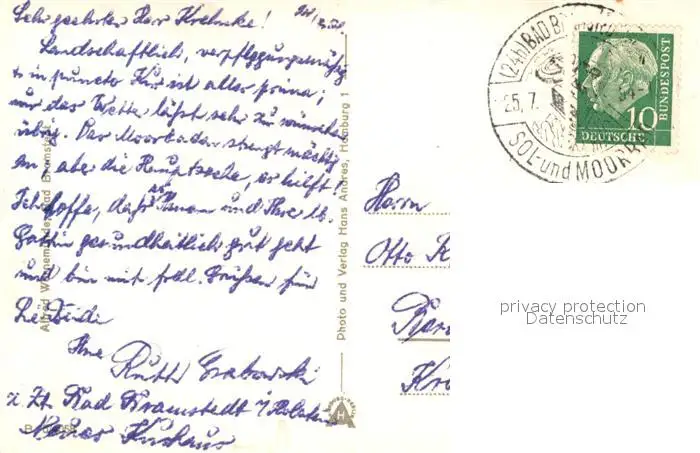 Sehr geehrter Herr Krahnke!
Landschaftlich, verpflegungsmäßig
u. in puncto Kur ist alles prima;
nur das Wetter läßt sehr zu wünschen
übrig. Das Moorbaden strengt mächtig
an, aber die Hauptsache, es hilft!
Ich hoffe, daß es Ihnen und Ihrer lb.
Gattin gesundheitlich gut geht
und bin mit frdl. Grüßen für
Sie beide
Ihre
Ruth Grabowski
z. Zt. Bad Bramstedt / Holstein
Neues Kurhaus
Alfred Warnemünde, Bad Bramstedt
Photo und Verlag Hans Andres, Hamburg 1
H
Herrn
Otto K
(24b) BAD BR
25.7.
SOL- und MOORB
10
DEUTSCHE
BUNDESPOST
privacy protection
Datenschutz